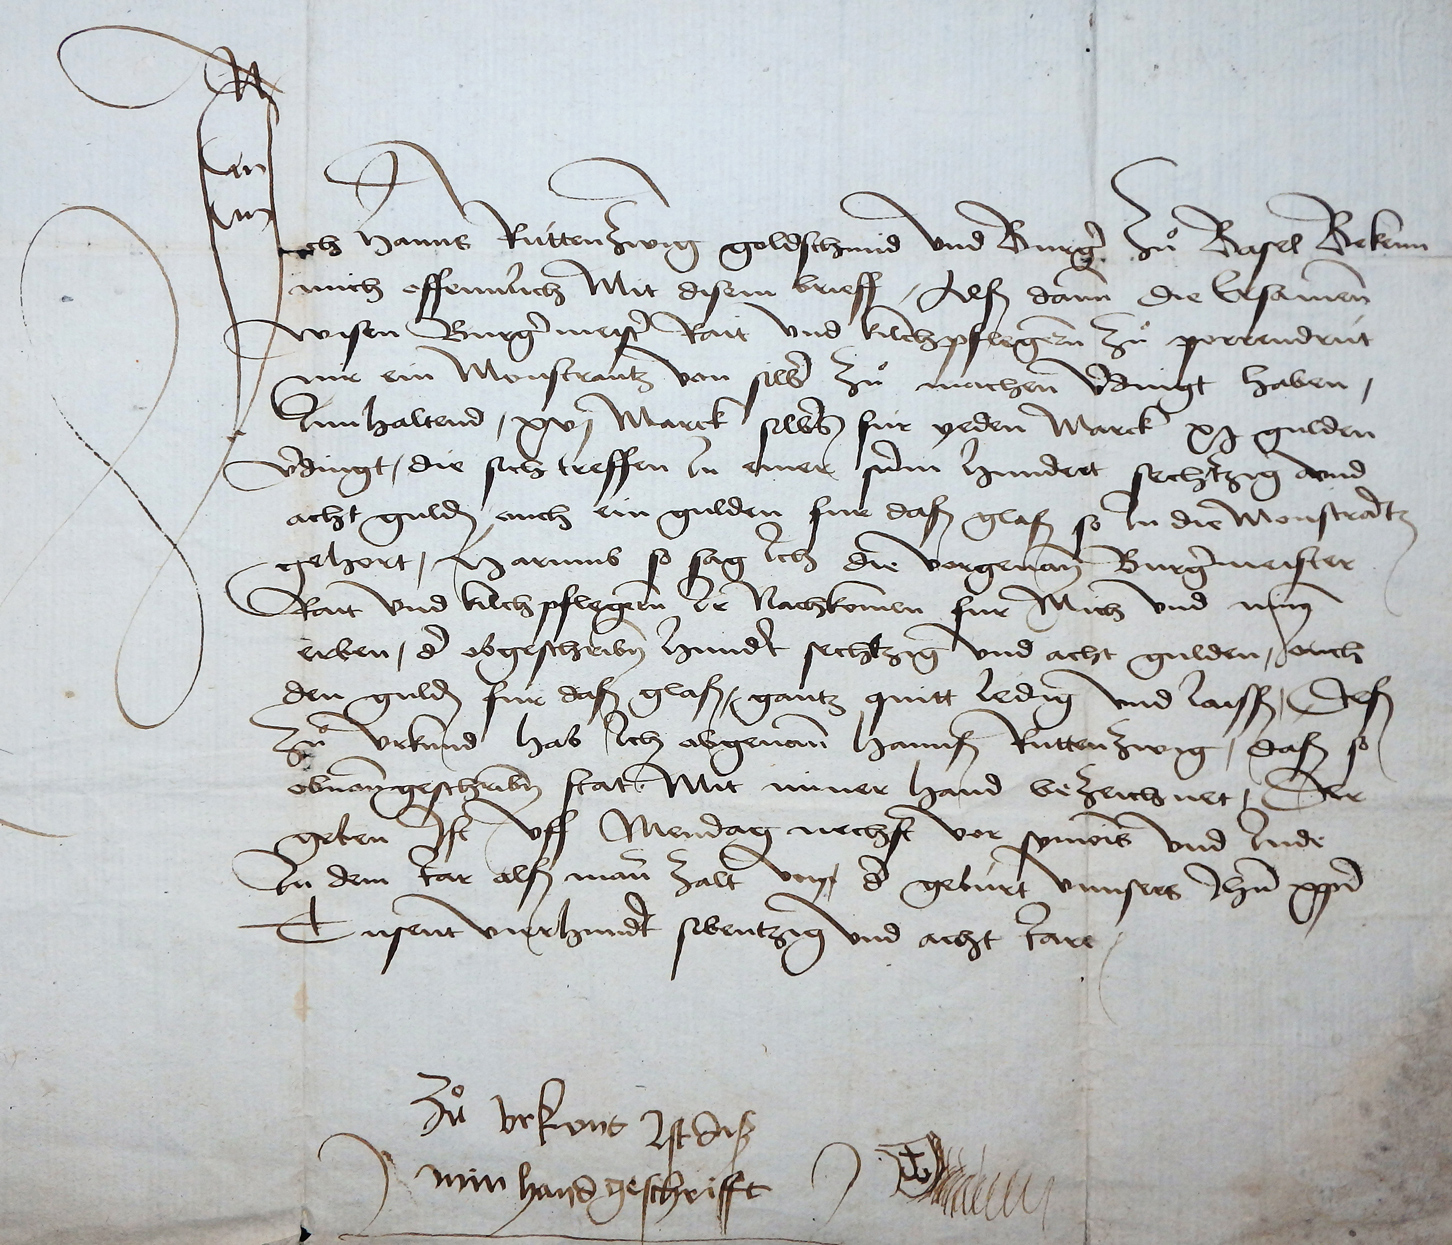 Ich Hanns Ruttenzwig goldschmid vnd Burgr zů Basel Bekenn
mich offennlich Mit disem brieff / Alß dann die Ersamen
wisen Burgrmeistr Rait vnd kilchpflegern zů porrendrut
mir ein Monstrantz von silbr zů machen vrdingt haben /
Innhaltend / xvj Marck silbrs fur yeden Marck xj gulden
vrdingt / die sich treffen In einer sum hundert sechtzig vnd
acht guldn / ouch ein gulden fur daß glaß so In die Monstrantz
gehort / Harumb so sag Ich die vorgenan Burgrmeister
Rait vnd kilchpflegern Ir Nachkomen fur Mich vnd min
erben / dr obgeschribn hundrt sechtzig vnd acht gulden / ouch
den guldn fur daß glaß / gantz quitt ledig vnd laiss / Deß
zů vrkund hab Ich obgenan hannß Ruttenzwig / daß so
obnangeschribn stat Mit miner hand bezeichnet / Der
geben Ist vff Mendag nechst vor symois vnd Jude
In dem Iar alß man zalt von dr geburt vnnsers hrn xpi
Tusent vierhundrt sibentzig vnd acht Iare
zů vrkund Ist diß
min handgeschrifft